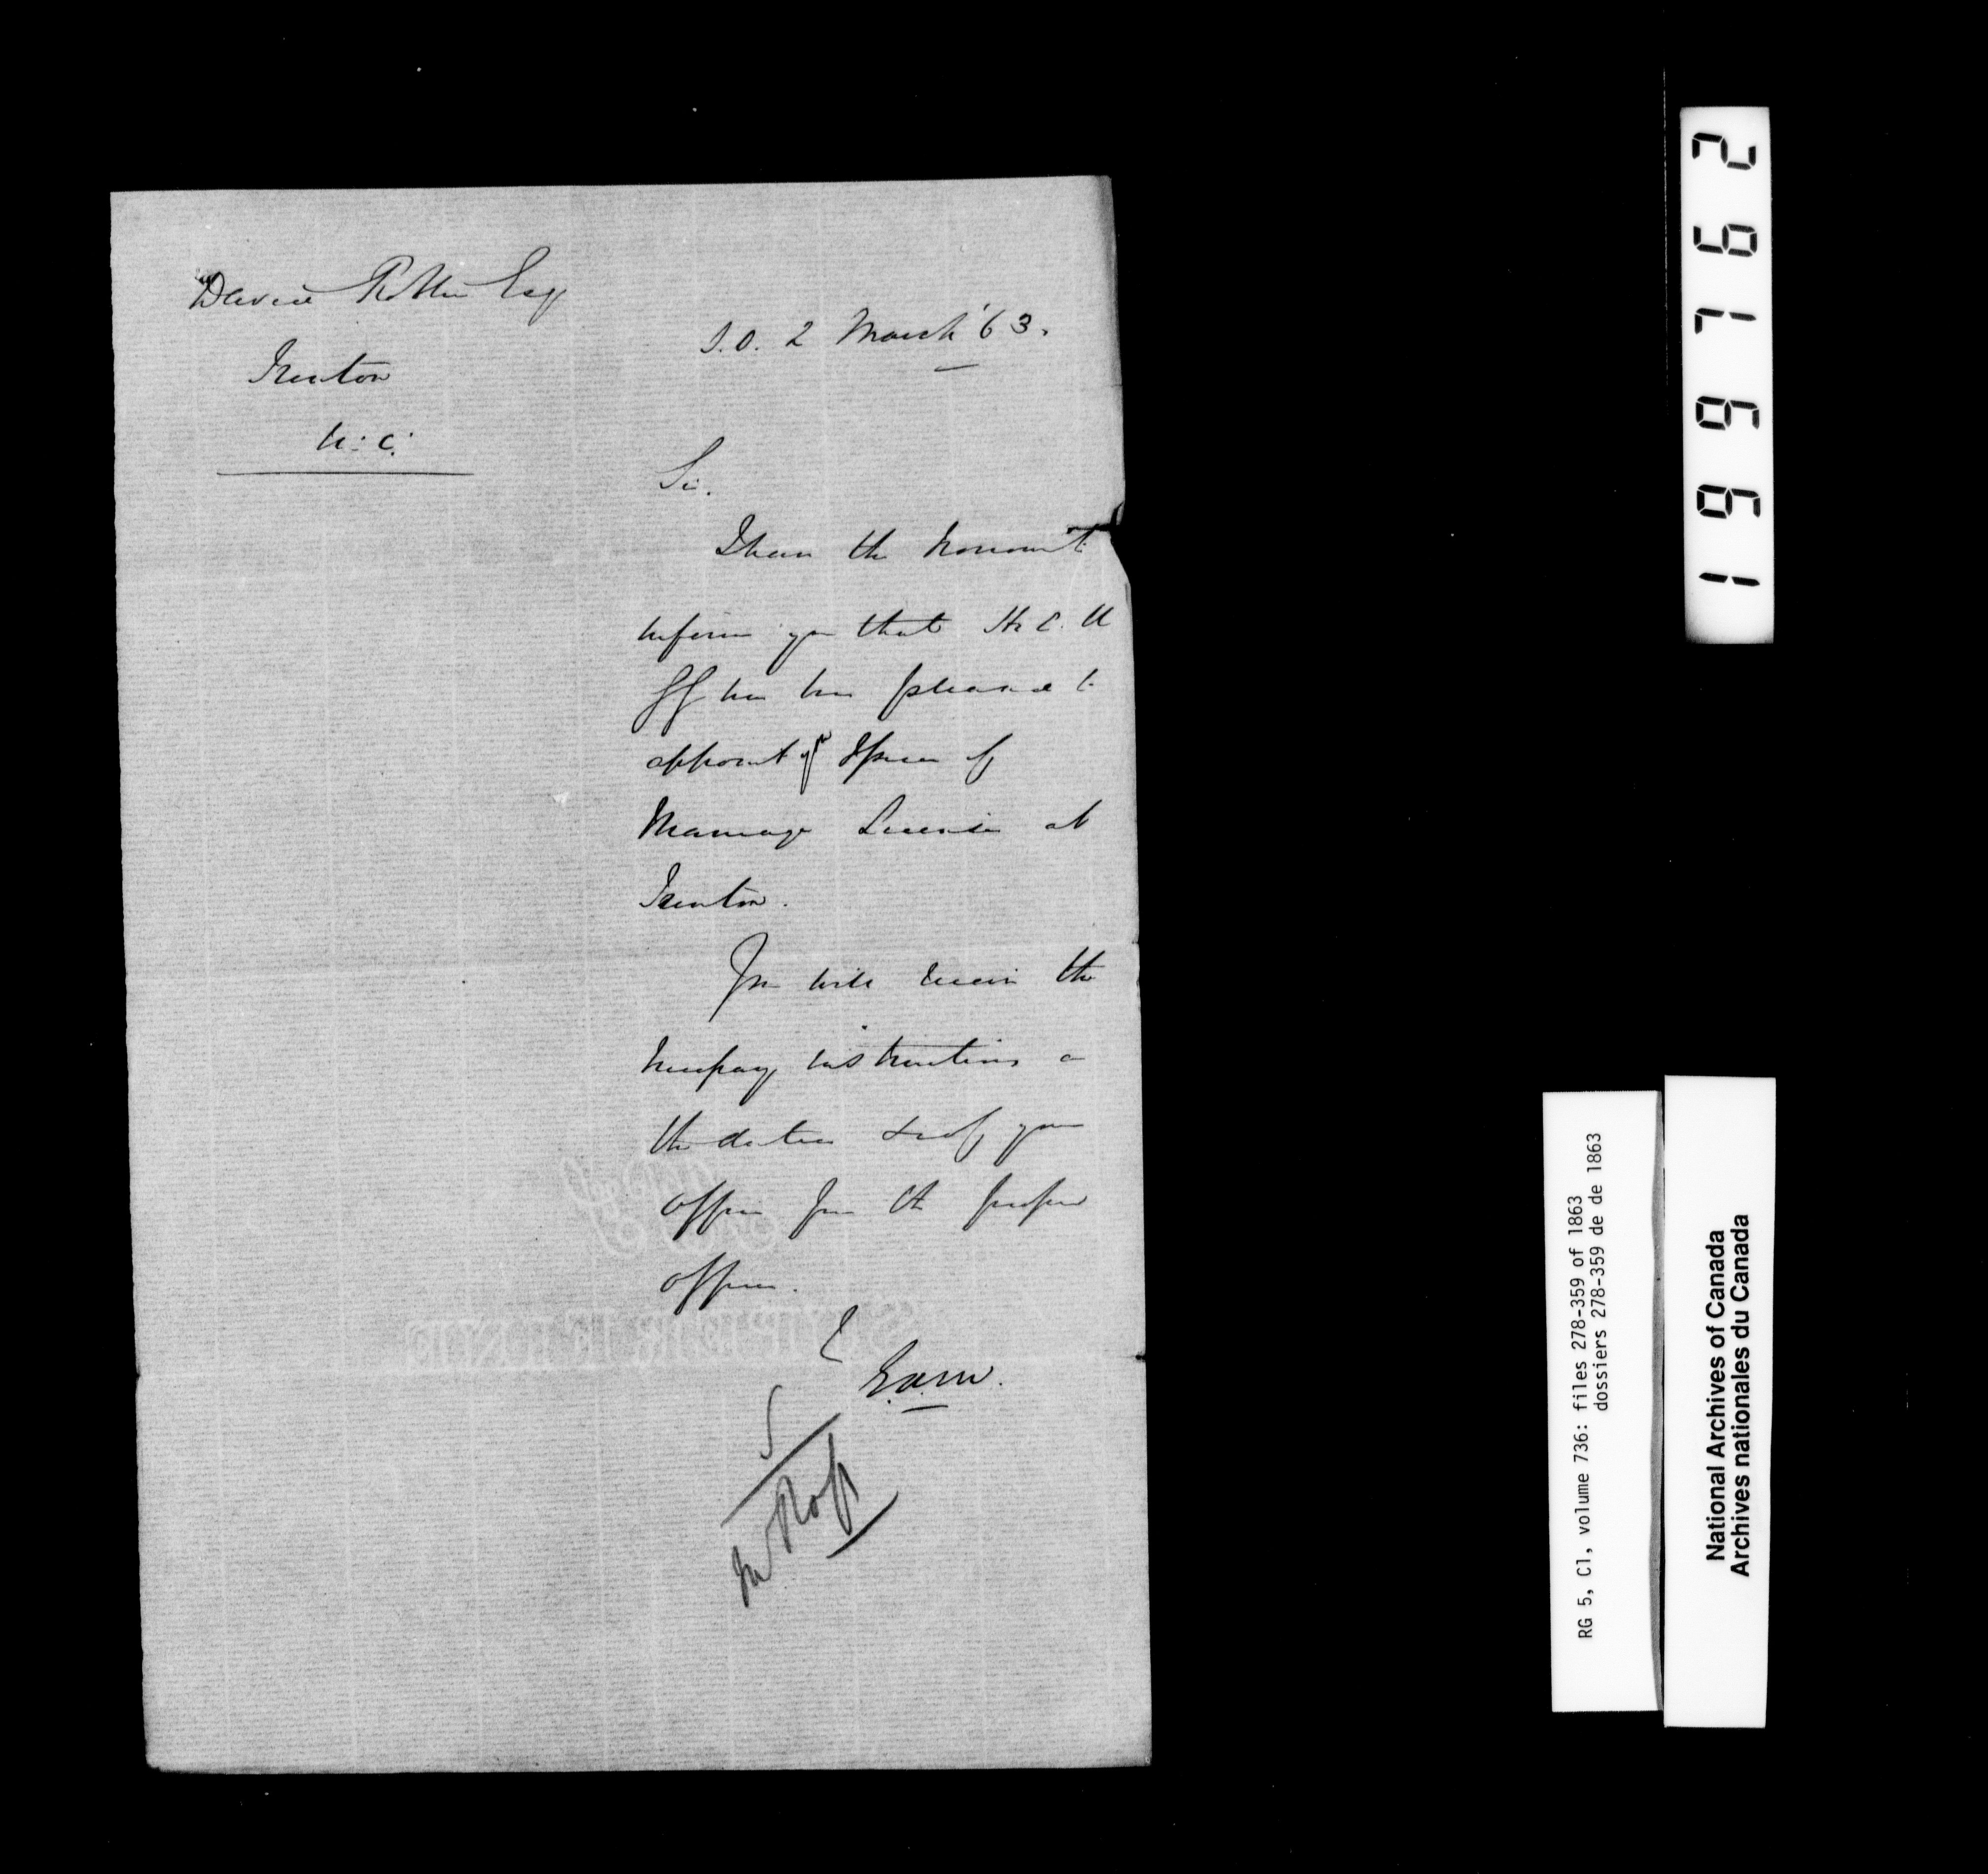 David Potter Esq
Trenton
U. C.
S.O. 2 March '63.
Sir.
I have the honour to
inform you that His E. the
GG has been pleased to
appoint you Issuer of
Marriage Licenses at
Trenton.
You will receive the
necessary instructions as
the duties of your
office from the proper
officer.
E.A.M.
Mr Ross
199762
RG 5, C1, volume 736: files 278-359 of 1863
dossiers 278-359 de de 1863
National Archives of Canada
Archives nationales du Canada